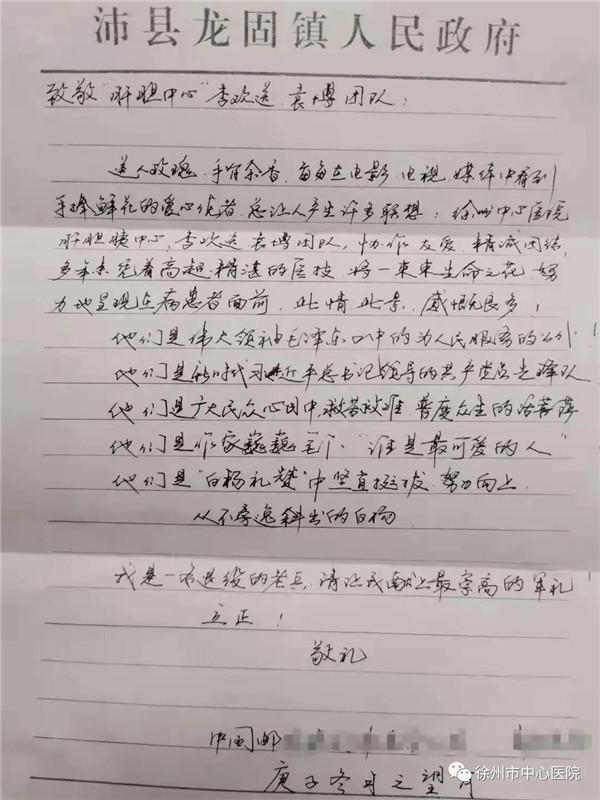 沛县龙固镇人民政府
致敬"肝胆中心"李欢送 袁博团队:
送人玫瑰,手留余香,每每在电影、电视、媒体中看到
手捧鲜花的爱心使者,总让人产生许多联想:徐州中心医院
肝胆胰中心,李欢送 袁博团队,协作友爱 精诚团结,
多年来凭着高超、精湛的医技,将一束束生命之花,努
力地呈现在病患者面前,此情此景,感慨良多!
他们是伟大领袖毛泽东口中的为人民服务的
他们是新时代习近平总书记领导的共产党员先锋队
他们是广大民众心目中,救苦救难,普度众生的活菩萨
他们是作家魏巍笔下"谁是最可爱的人"
他们是"白杨礼赞"中坚直挺拔 努力向上
从不旁逸斜出的白杨
我是一名退役的老兵,请让我献上最崇高的军礼
立正!
敬礼
中国邮
庚子冬月之望月
徐州市中心医院